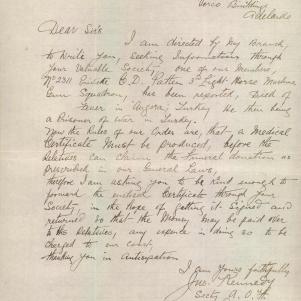 Verco Building
Adelaide
Dear Sir
I am directed by My Branch,
to Write you, Seeking Information through
Your Valuable Society, one of our Members
No 2311 E. D. Patten 3rd Light Horse Machine
Gun Squadron, has been reported, Died of
Fever in Angora, Turkey He then being
a Prisoner of War in Turkey.
Now the Rules of our Order are, that, a Medical
Certificate Must be produced, before the
Relatives can Claim the Funeral donation as
prescribed in our General Laws,
therefore I am asking you to be kind enough to
forward the enclosed Certificate through Your
Society, in the Hope of getting it Signed and
returned so that the Money may be paid over
to the Relatives, any expence in doing so to be
charged to our court,
thanking you in Anticipation
I am Yours faithfully
Jno. Kennedy
Secty A.O.F.